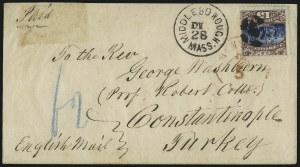 Paid
MIDDLEBOROUGH
28
MASS.
To the Rev
George Washburn
(Prof Robert Coll
Constantinople
Turkey
English Mail